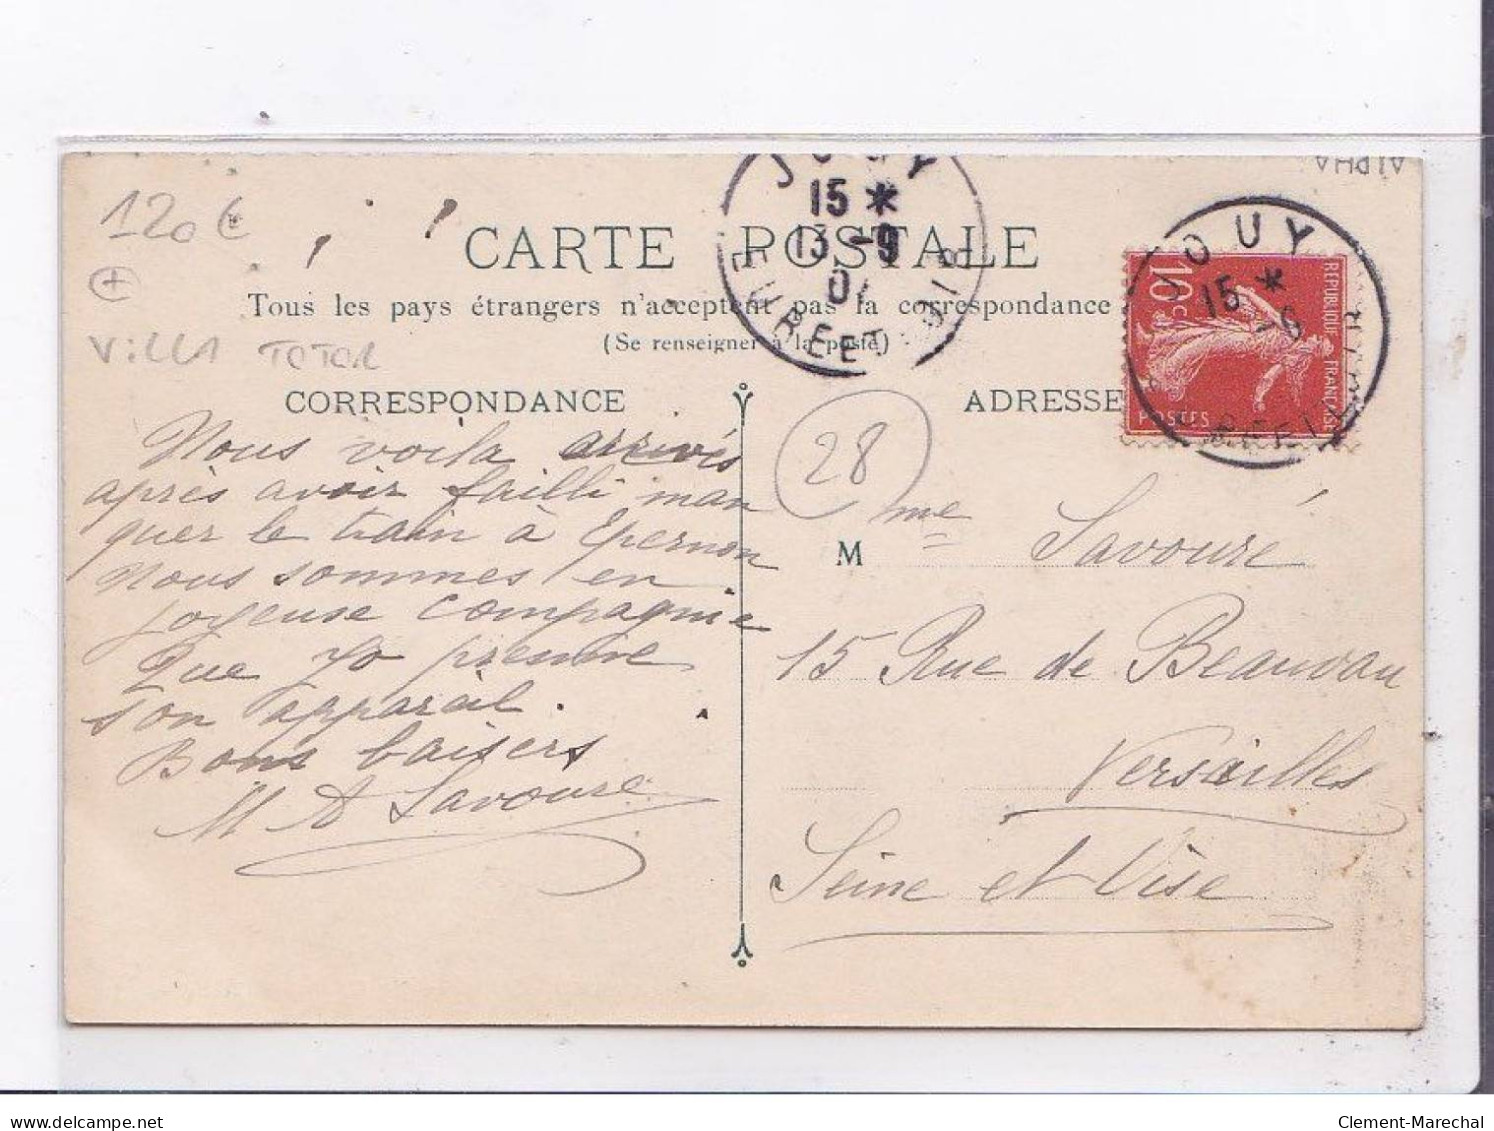 120€
+
VILLA TOTOR
CARTE POSTALE
Tous les pays étrangers n'acceptent pas la correspondance
(Se renseigner à la poste)
CORRESPONDANCE
Nous voila arrivés
après avoir failli man
quer le train à Epernon
Nous sommes en
joyeuse compagnie
Que Jo prenne
son appareil.
Bons baisers
M A Savouré
JOUY
15 *
13 -9
07
EURE ET LOIR
JOUY
15 *
-9
EURE ET LOIR
REPUBLIQUE FRANÇAISE
10c
POSTES
ADRESSE
28
Mme Savouré
15 Rue de Beauvau
Versailles
Seine et Oise
delcampe.net
Clement-Marechal